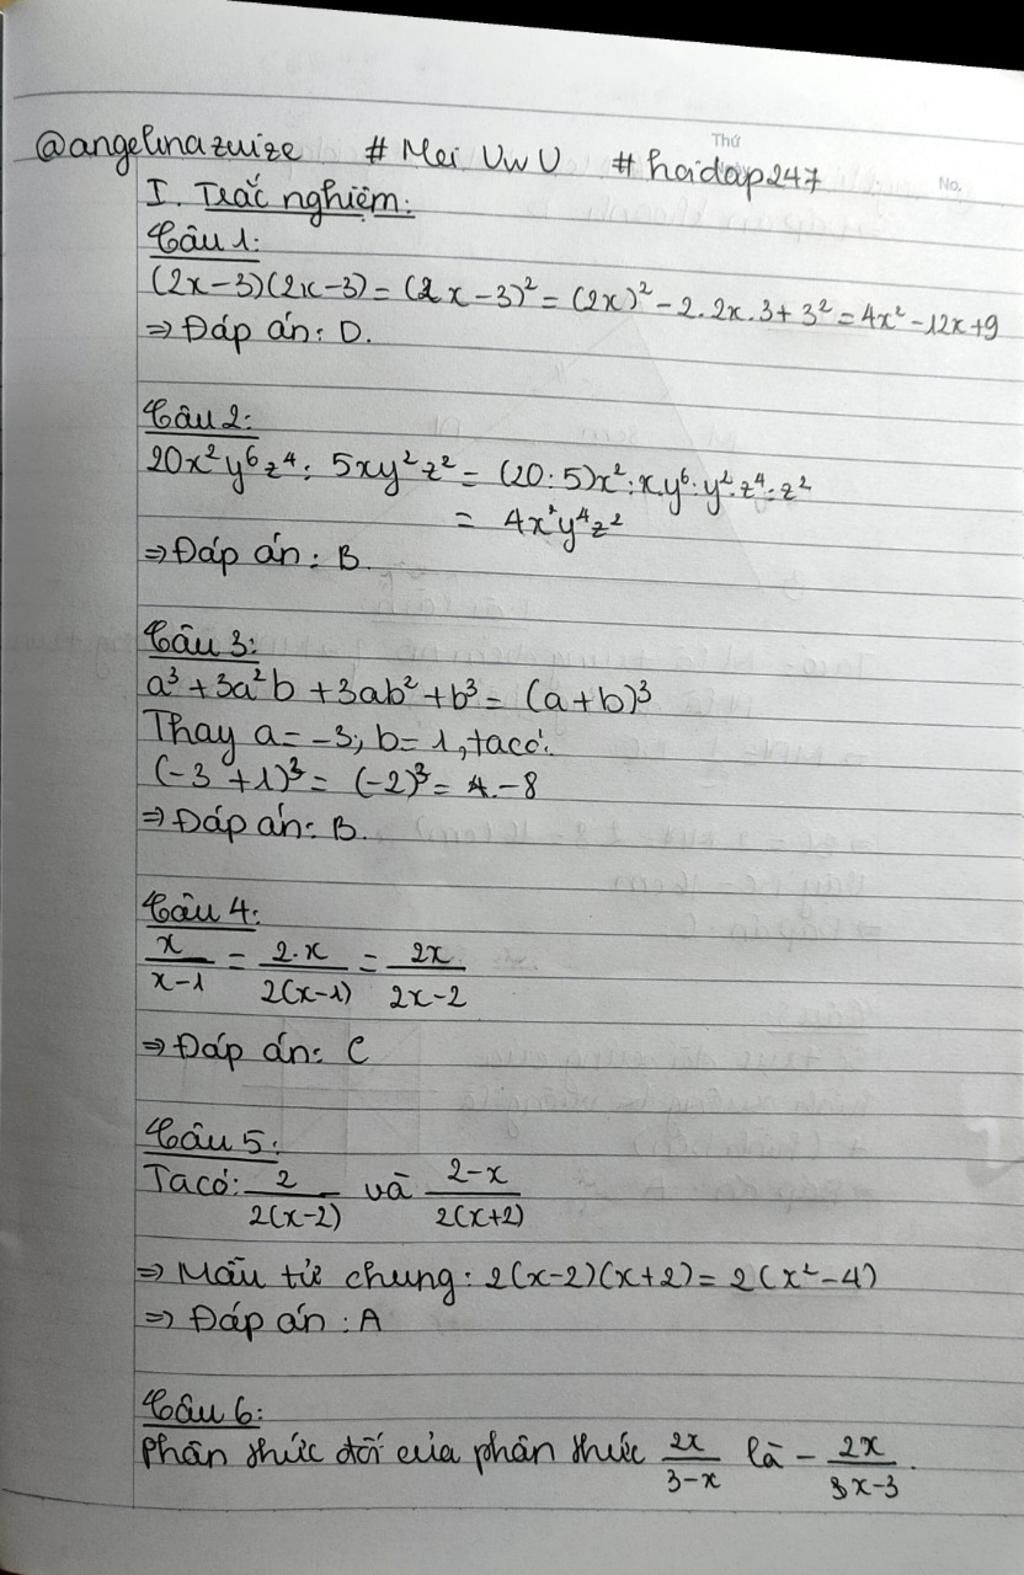 Thứ
No.
@angelinazuize # Mei UwU # hoidap247
I. Trắc nghiệm:
Câu 1:
(2x-3)(2x-3) = (2x-3)² = (2x)² - 2.2x.3 + 3² = 4x² - 12x + 9
⇒ Đáp án: D.
Câu 2:
20x²y⁶z⁴ : 5xy²z² = (20:5)x²:x.y⁶:y².z⁴:z²
= 4x y⁴z²
⇒ Đáp án: B.
Câu 3:
a³ + 3a²b + 3ab² + b³ = (a+b)³
Thay a = -3; b = 1, ta có:
(-3 + 1)³ = (-2)³ = -8
⇒ Đáp án: B.
Câu 4:
x/(x-1) = 2.x/2(x-1) = 2x/(2x-2)
⇒ Đáp án: C
Câu 5:
Ta có: 2/2(x-2) và (2-x)/2(x+2)
⇒ Mẫu tử chung: 2(x-2)(x+2) = 2(x²-4)
⇒ Đáp án: A
Câu 6:
Phân thức đối của phân thức 2x/(3-x) là - 2x/(x-3).